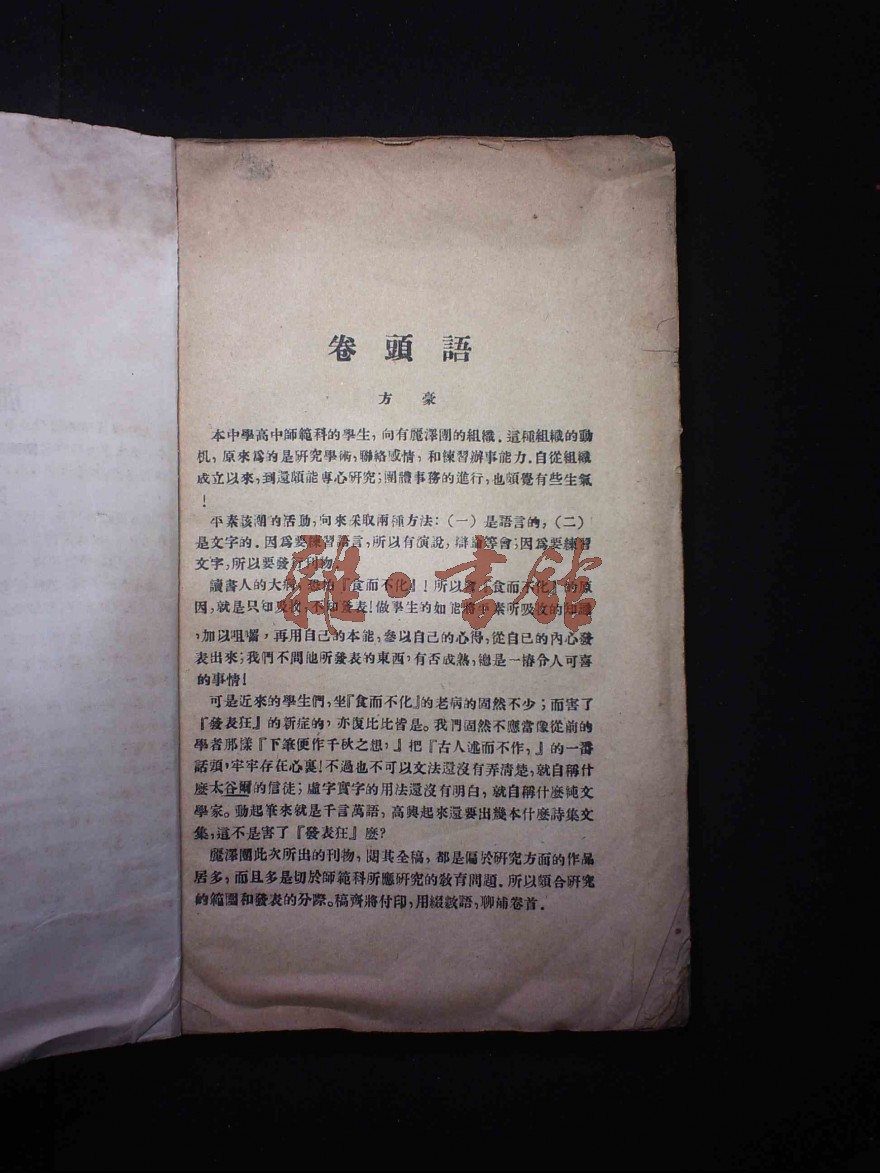 卷頭語
方豪
本中學高中師範科的學生，向有麗澤團的組織．這種組織的動
机，原來爲的是研究學術，聯絡感情，和練習辦事能力．自從組織
成立以來，到還頗能專心研究；團體事務的進行，也頗覺有些生氣
！
平素該團的活動，向來采取兩種方法：（一）是語言的，（二）
是文字的．因爲要練習語言，所以有演說，辯論等會；因爲要練習
文字，所以要發行刊物．
讀書人的大病，恐怕『食而不化』！所以會『食而不化』的原
因，就是只知吸收，不知發表！做學生的如能將平素所吸收的知識
，加以咀嚼，再用自己的本能，參以自己的心得，從自已的內心發
表出來；我們不問他所發表的東西，有否成熟，總是一樁令人可喜
的事情！
可是近來的學生們，坐『食而不化』的老病的固然不少；而害了
『發表狂』的新症的，亦復比比皆是。我們固然不應當像從前的
學者那樣『下筆便作千秋之想，』把『古人述而不作，』的一番
話頭，牢牢存在心裏！不過也不可以文法還沒有弄清楚，就自稱什
麽太谷爾的信徒；虛字實字的用法還沒有明白，就自稱什麽純文
學家。動起筆來就是千言萬語，高興起來還要出幾本什麽詩集文
集，這不是害了『發表狂』麽？
麗澤團此次所出的刊物，閱其全稿，都是屬於研究方面的作品
居多，而且多是切於師範科所應研究的敎育問題．所以頗合研究
的範圍和發表的分際。稿齊將付印，用綴數語，聊補卷首．
雜·書館